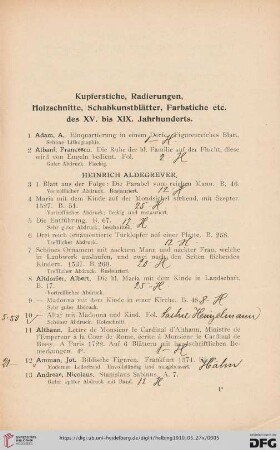 Kupferstiche, Radierungen,
Holzschnitte, Schabkunstblätter, Farbstiche etc.
des XV. bis XIX. Jahrhunderts.
1 Adam, A. Einquartierung in einem Dorfe. Figurenreiches Blatt.
Schöne Lithographie. 1-M
2 Albani, Francesco. Die Ruhe der hl. Familie auf der Flucht, diese
wird von Engeln bedient. Fol. 2 M
Guter Abdruck. Fleckig.
HEINRICH ALDEGREVER,
3 1 Blatt aus der Folge: Die Parabel vom reichen Mann. B. 46.
Vortrefflicher Abdruck. Restauriert. 12 M
4 Maria mit dem Kinde auf der Mondsichel stehend, mit Szepter.
1527. B. 51. 25 M
Trefflicher Abdruck. Fleckig und restauriert.
5 Die Entführung. B. 67. 12 M
Sehr guter Abdruck, beschnitten.
6 Drei nach ornamentierte Türkköpfe auf einer Plaque. B. 258.
Trefflicher Abdruck. 12 M
7 Schönes Ornament mit nacktem Mann und nackter Frau, welche
in Laubwerk auslaufen und zwei nach den Seiten fliehenden
Kindern. 1537. B. 260. 26 M
Trefflicher Abdruck. Restauriert.
8 Altdorfer, Albert. Die hl. Maria mit dem Kinde in Landschaft.
B. 17. 25-M
Vortrefflicher Abdruck.
9 — Madonna mit dem Kinde in einer Kirche. B. 48. 8 M
Sehr guter Abdruck.
10 — Altar mit Madonna und Kind. Fol.
Schöner Abdruck. Holzschnitt
11 Althann. Letter de Monsieur le Cardinal d'Althann, Ministre de
l'Empereur à la Cour de Rome, écrite à Monsieur le Cardinal de
Bissy. A Paris 1722. Auf 6 Blättern mit handschriftlichen Bemerkungen.
12 Amman, Jost. Biblische Figuren. Frankfurt 1574.
Moderner Ledereinband. Unvollständig und ausgebessert Hahn
13 Andrea, Nicolaus. Stanislaus Sabions. A. 7.
Guter später Abdruck mit Rand. 12 M
1*
http://digi.ub.uni-heidelberg.de/diglit/helbing1910_05_27a/0005